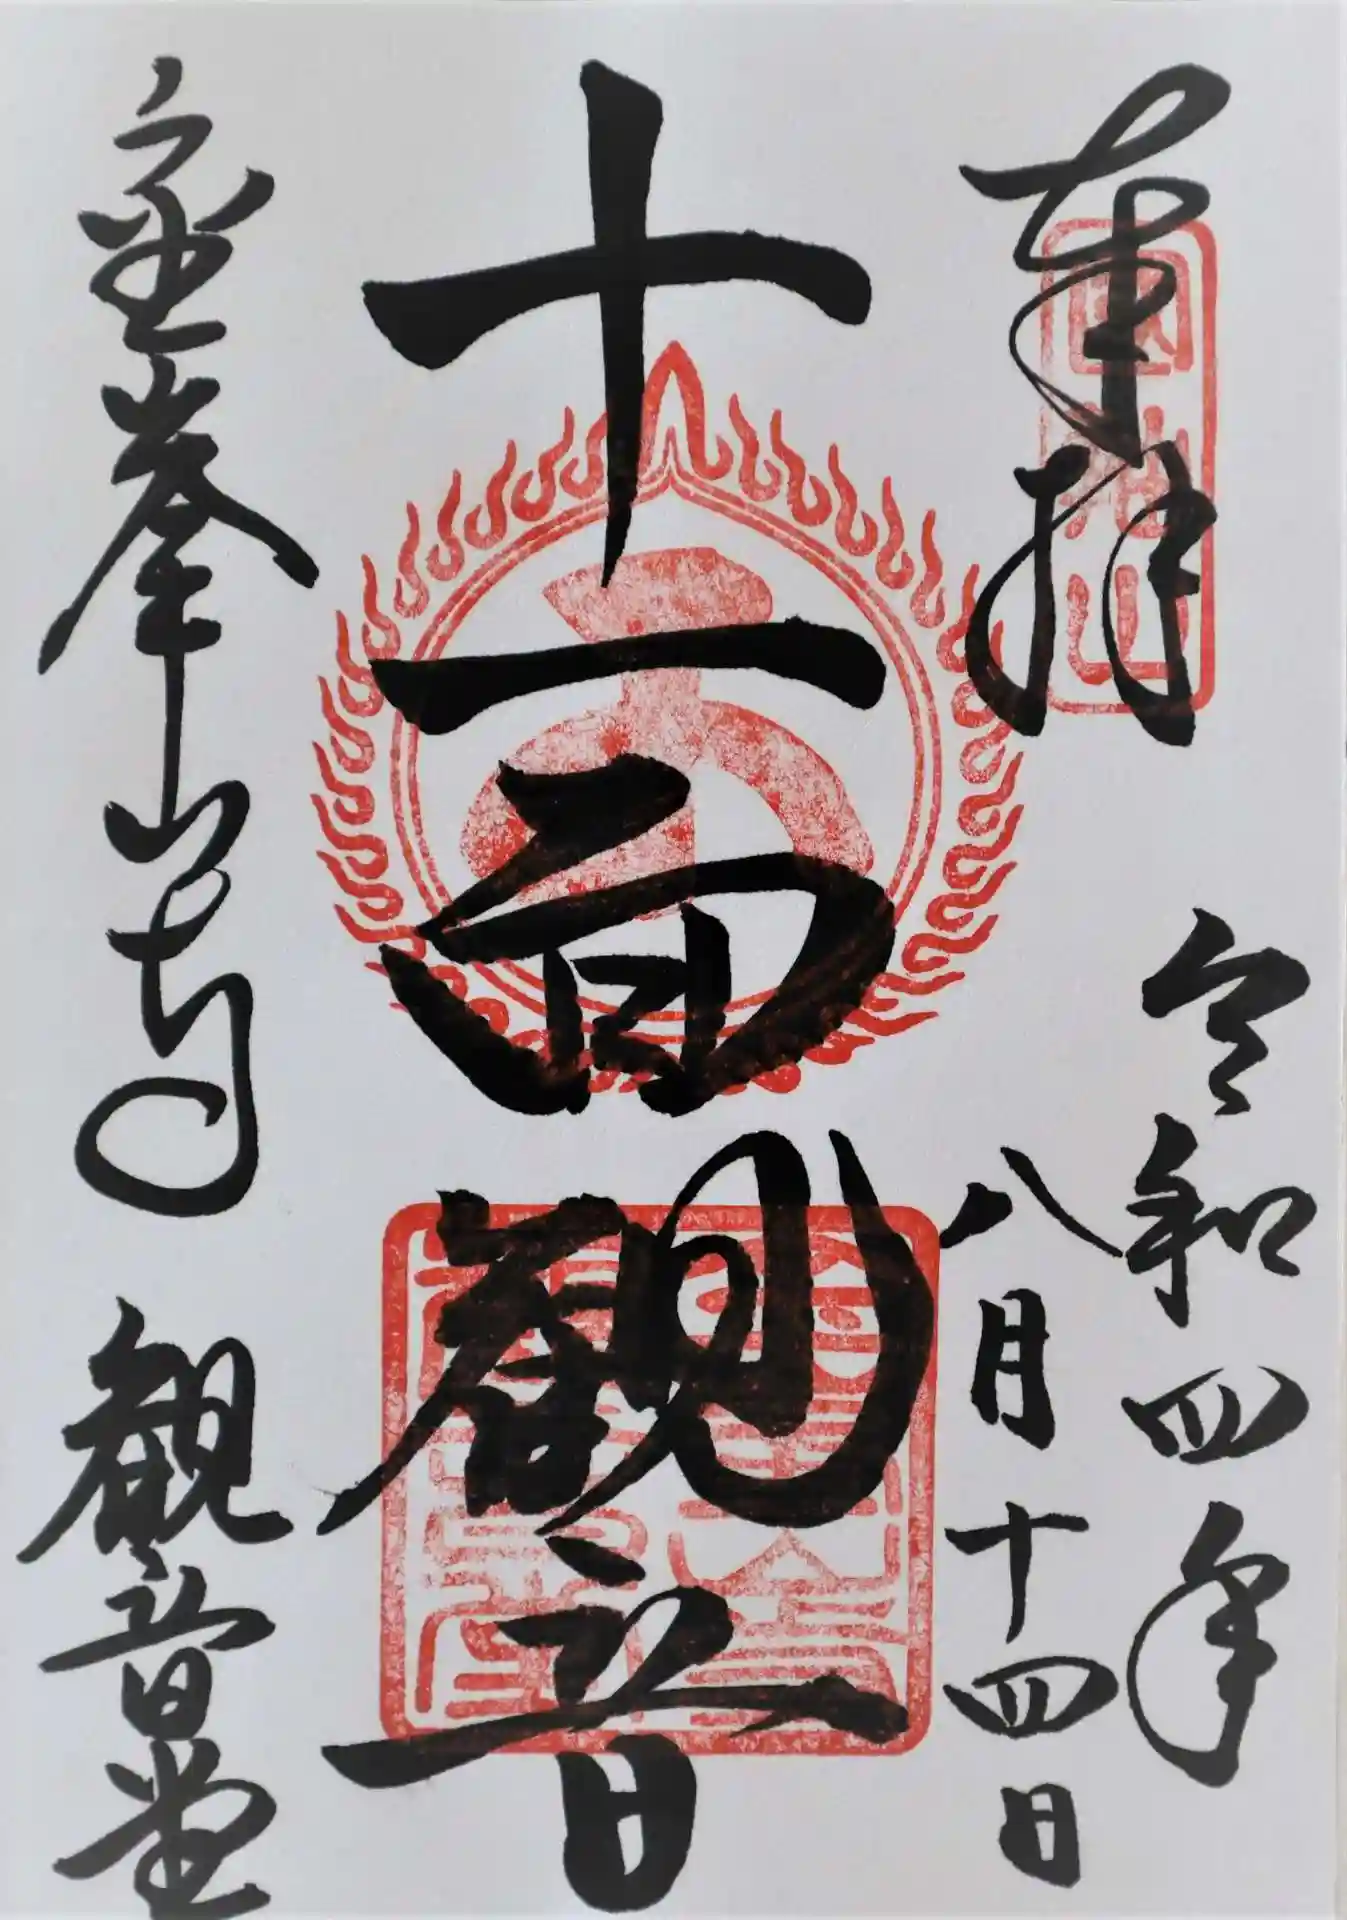 奉拝
国軸山
令和四年
八月十四日
十一面観音
金峯山寺 観音堂